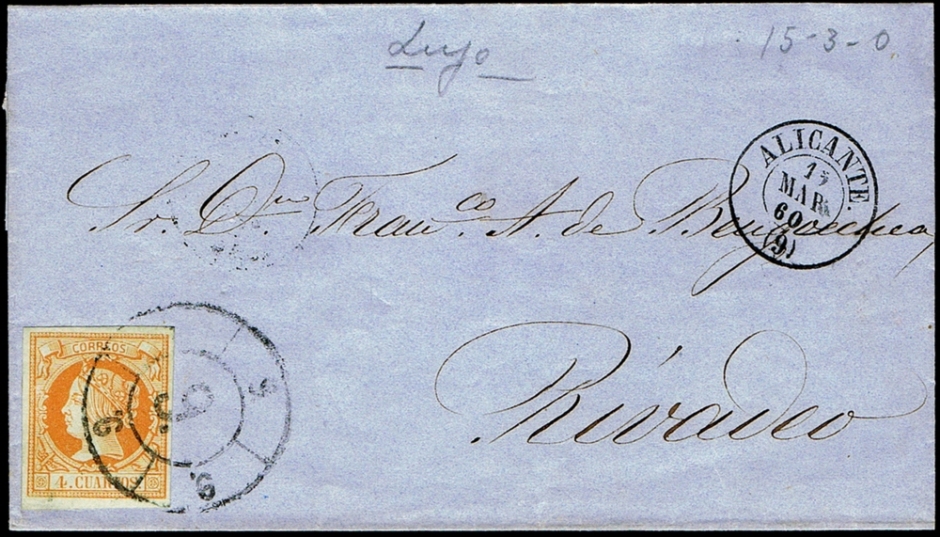 Lugo
15-3-0
ALICANTE.
15
MAR
60
(9)
Sr. Dn Franco. A. de Bengoechea
Rivadeo
CORREOS
4. CUARTOS
9
9
9
9